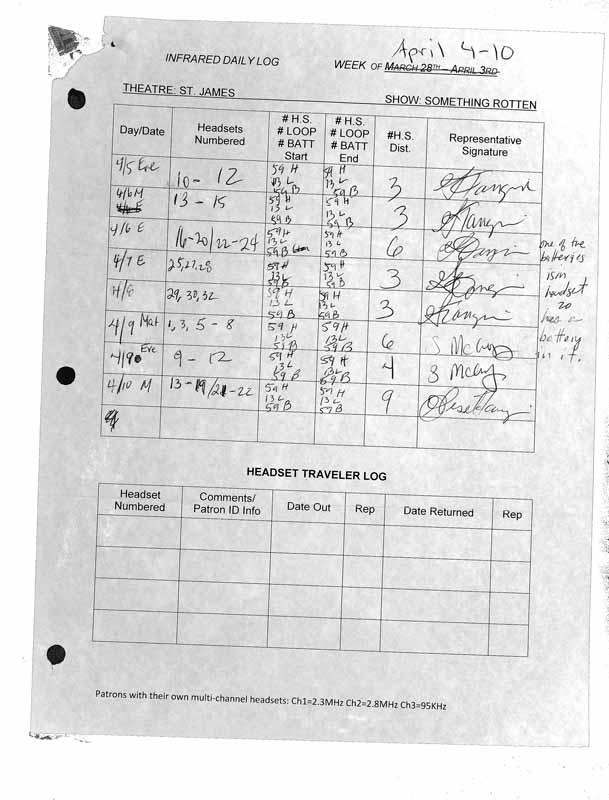 April 4-10
INFRARED DAILY LOG WEEK OF MARCH 28TH – APRIL 3RD
THEATRE: ST. JAMES
SHOW: SOMETHING ROTTEN
Day/Date Headsets Numbered # H.S. # LOOP # BATT Start # H.S. # LOOP # BATT End #H.S. Dist. Representative Signature
4/5 Eve 10 - 12 59 H 13 L 59 B 59 H 13 L 59 B 3
4/6 M 13 - 15 59 H 13 L 59 B 59 H 13 L 59 B 3
4/6 E 16-20/22-24 59 H 13 L 59 B 59 H 13 L 59 B 6
4/7 E 25,27,28 59 H 13 L 59 B 59 H 13 L 59 B 3
4/8 29, 30, 32 59 H 13 L 59 B 59 H 13 L 59 B 3
4/9 Mat 1, 3, 5 - 8 59 H 13 L 59 B 59 H 13 L 59 B 6
4/9 Eve 9 - 12 59 H 13 L 59 B 59 H 13 L 59 B 4
4/10 M 13 - 19/21-22 59 H 13 L 59 B 59 H 13 L 59 B 9
one of the
batteries
headset
20
has a
battery
in it.
HEADSET TRAVELER LOG
Headset Numbered Comments/ Patron ID Info Date Out Rep Date Returned Rep
Patrons with their own multi-channel headsets: Ch1=2.3MHz Ch2=2.8MHz Ch3=95KHz